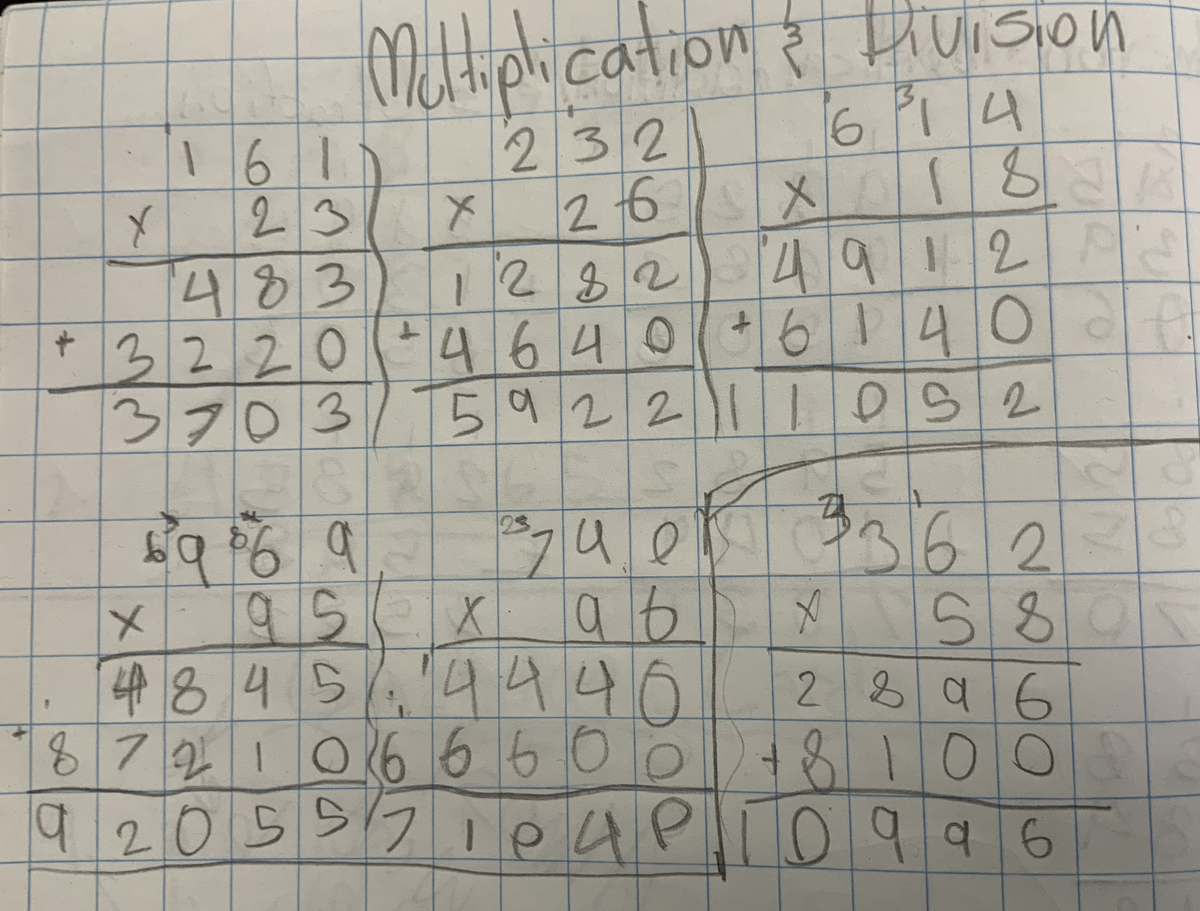 Multiplication & Division
1 6 1
x 2 3
4 8 3
+ 3 2 2 0
3 7 0 3
2 3 2
x 2 6
1 2 8 2
+ 4 6 4 0
5 9 2 2
6 1 4
x 1 8
4 9 1 2
+ 6 1 4 0
1 1 0 5 2
9 6 9
x 9 5
4 8 4 5
+ 8 7 2 1 0
9 2 0 5 5
7 4 0
x 9 6
4 4 4 0
6 6 6 0 0
7 1 0 4 0
3 6 2
x 5 8
2 8 9 6
+ 8 1 0 0
1 0 9 9 6